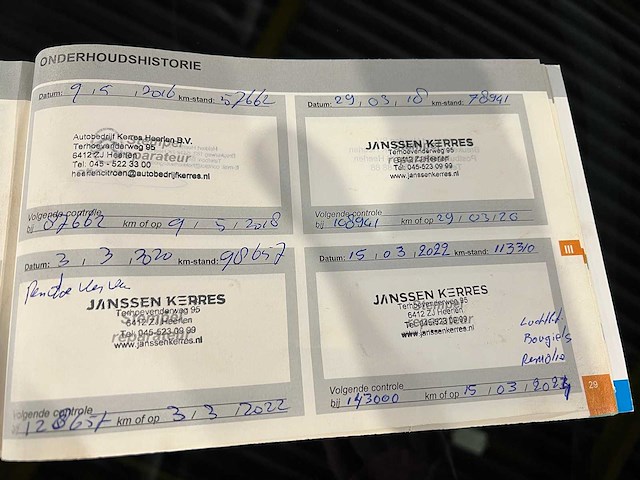 ONDERHOUDSHISTORIE
Datum: 9, 5, 2016 km-stand: 57662
Autobedrijf Kerres Heerlen B.V.
Terhoevenderweg 95
6412 ZJ Heerlen
Tel: 045 - 522 33 00
heerlencitroen@autobedrijfkerres.nl
Stempel
reparateur
Volgende controle
bij 87662 km of op 9, 5, 2018
Datum: 29, 03, 18 km-stand: 78941
JANSSEN KERRES
Terhoevenderweg 95
6412 ZJ Heerlen
Tel: 045-523 09 99
www.janssenkerres.nl
Volgende controle
bij 108941 km of op 29, 03, 20
Datum: 3, 3, 2020 km-stand: 98657
JANSSEN KERRES
Terhoevenderweg 95
6412 ZJ Heerlen
Tel: 045-523 09 99
www.janssenkerres.nl
Stempel
reparateur
Volgende controle
bij 128657 km of op 3, 3, 2022
Datum: 15, 03, 2022 km-stand: 113310
JANSSEN KERRES
Terhoevenderweg 95
6412 ZJ Heerlen
Tel: 045-523 09 99
www.janssenkerres.nl
Stempel
reparateur
Bougies
Remolie
Volgende controle
bij 143000 km of op 15, 03, 2024
III
29